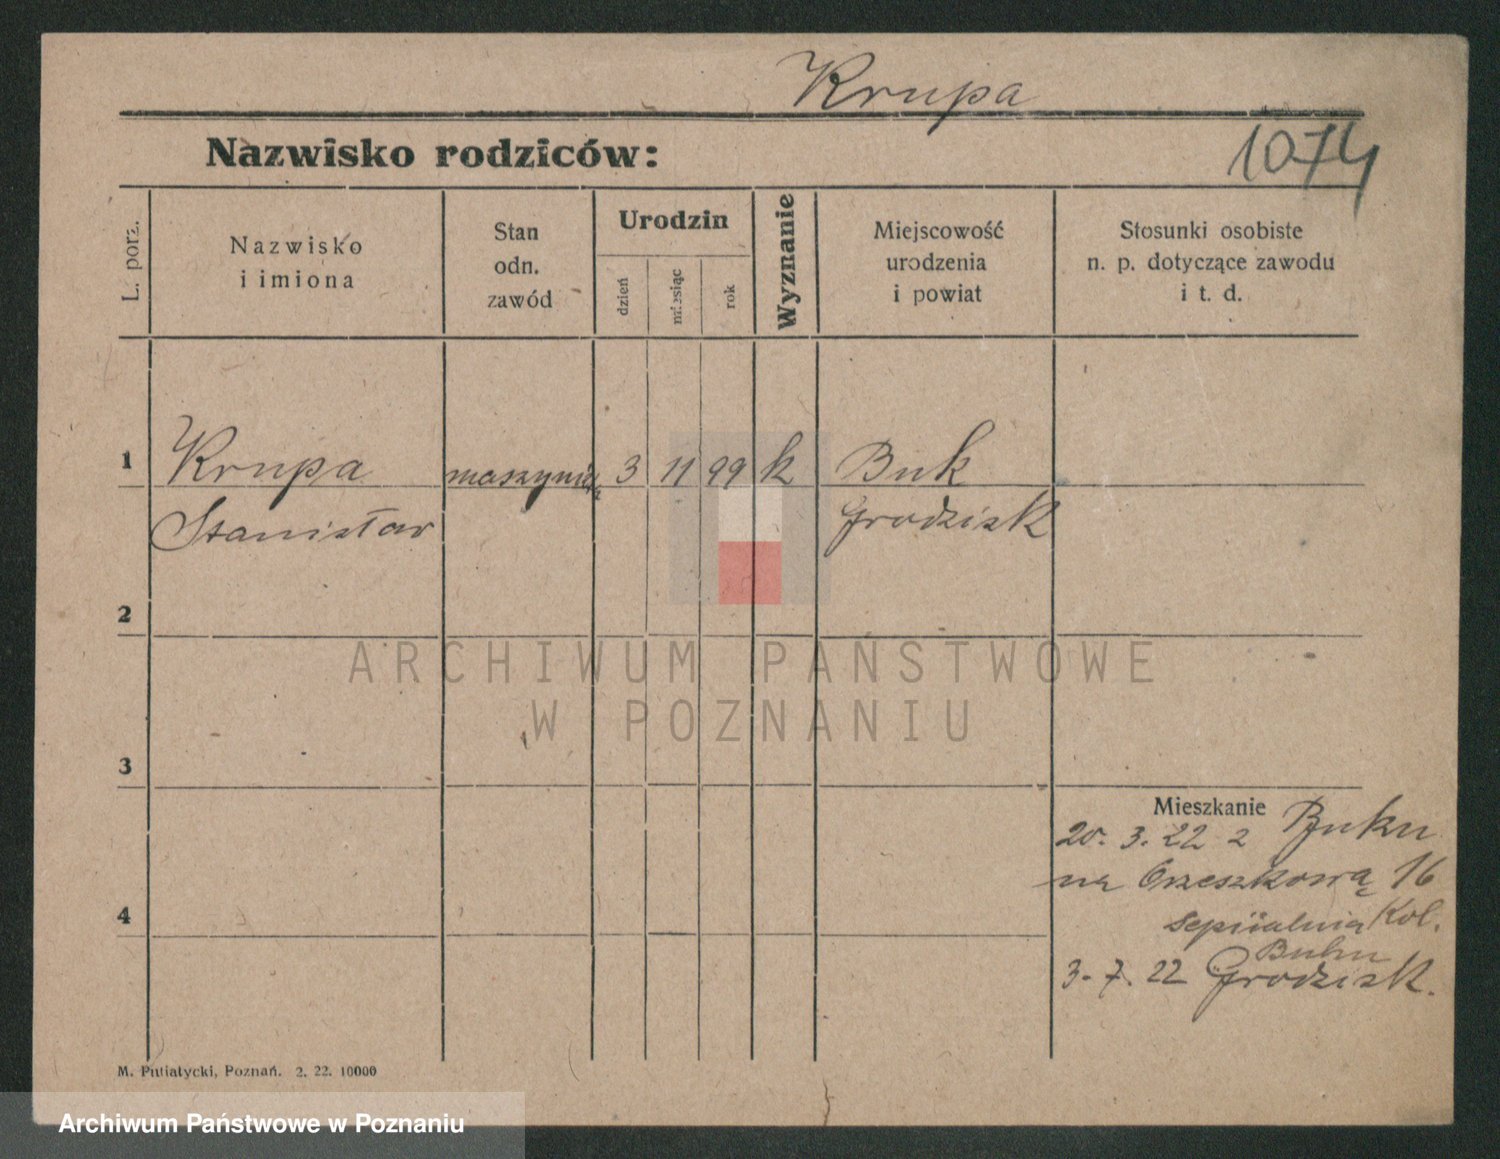 Krupa
Nazwisko rodziców:
1074
L. porz.
Nazwisko
i imiona
Stan
odn.
zawód
Urodzin
dzień
miesiąc
rok
Wyznanie
Miejscowość
urodzenia
i powiat
Stosunki osobiste
n. p. dotyczące zawodu
i t. d.
1 Krupa 3 11 99 k Buk
Stanisław Grodzisk
2
ARCHIWUM PAŃSTWOWE
W POZNANIU
3
Mieszkanie
20. 3. 22 z Buku
na Orzeszkową 16
Kol.
4
Buku
3. 7. 22 Grodzisk.
M. Putiatycki, Poznań. 2. 22. 10000
Archiwum Państwowe w Poznaniu